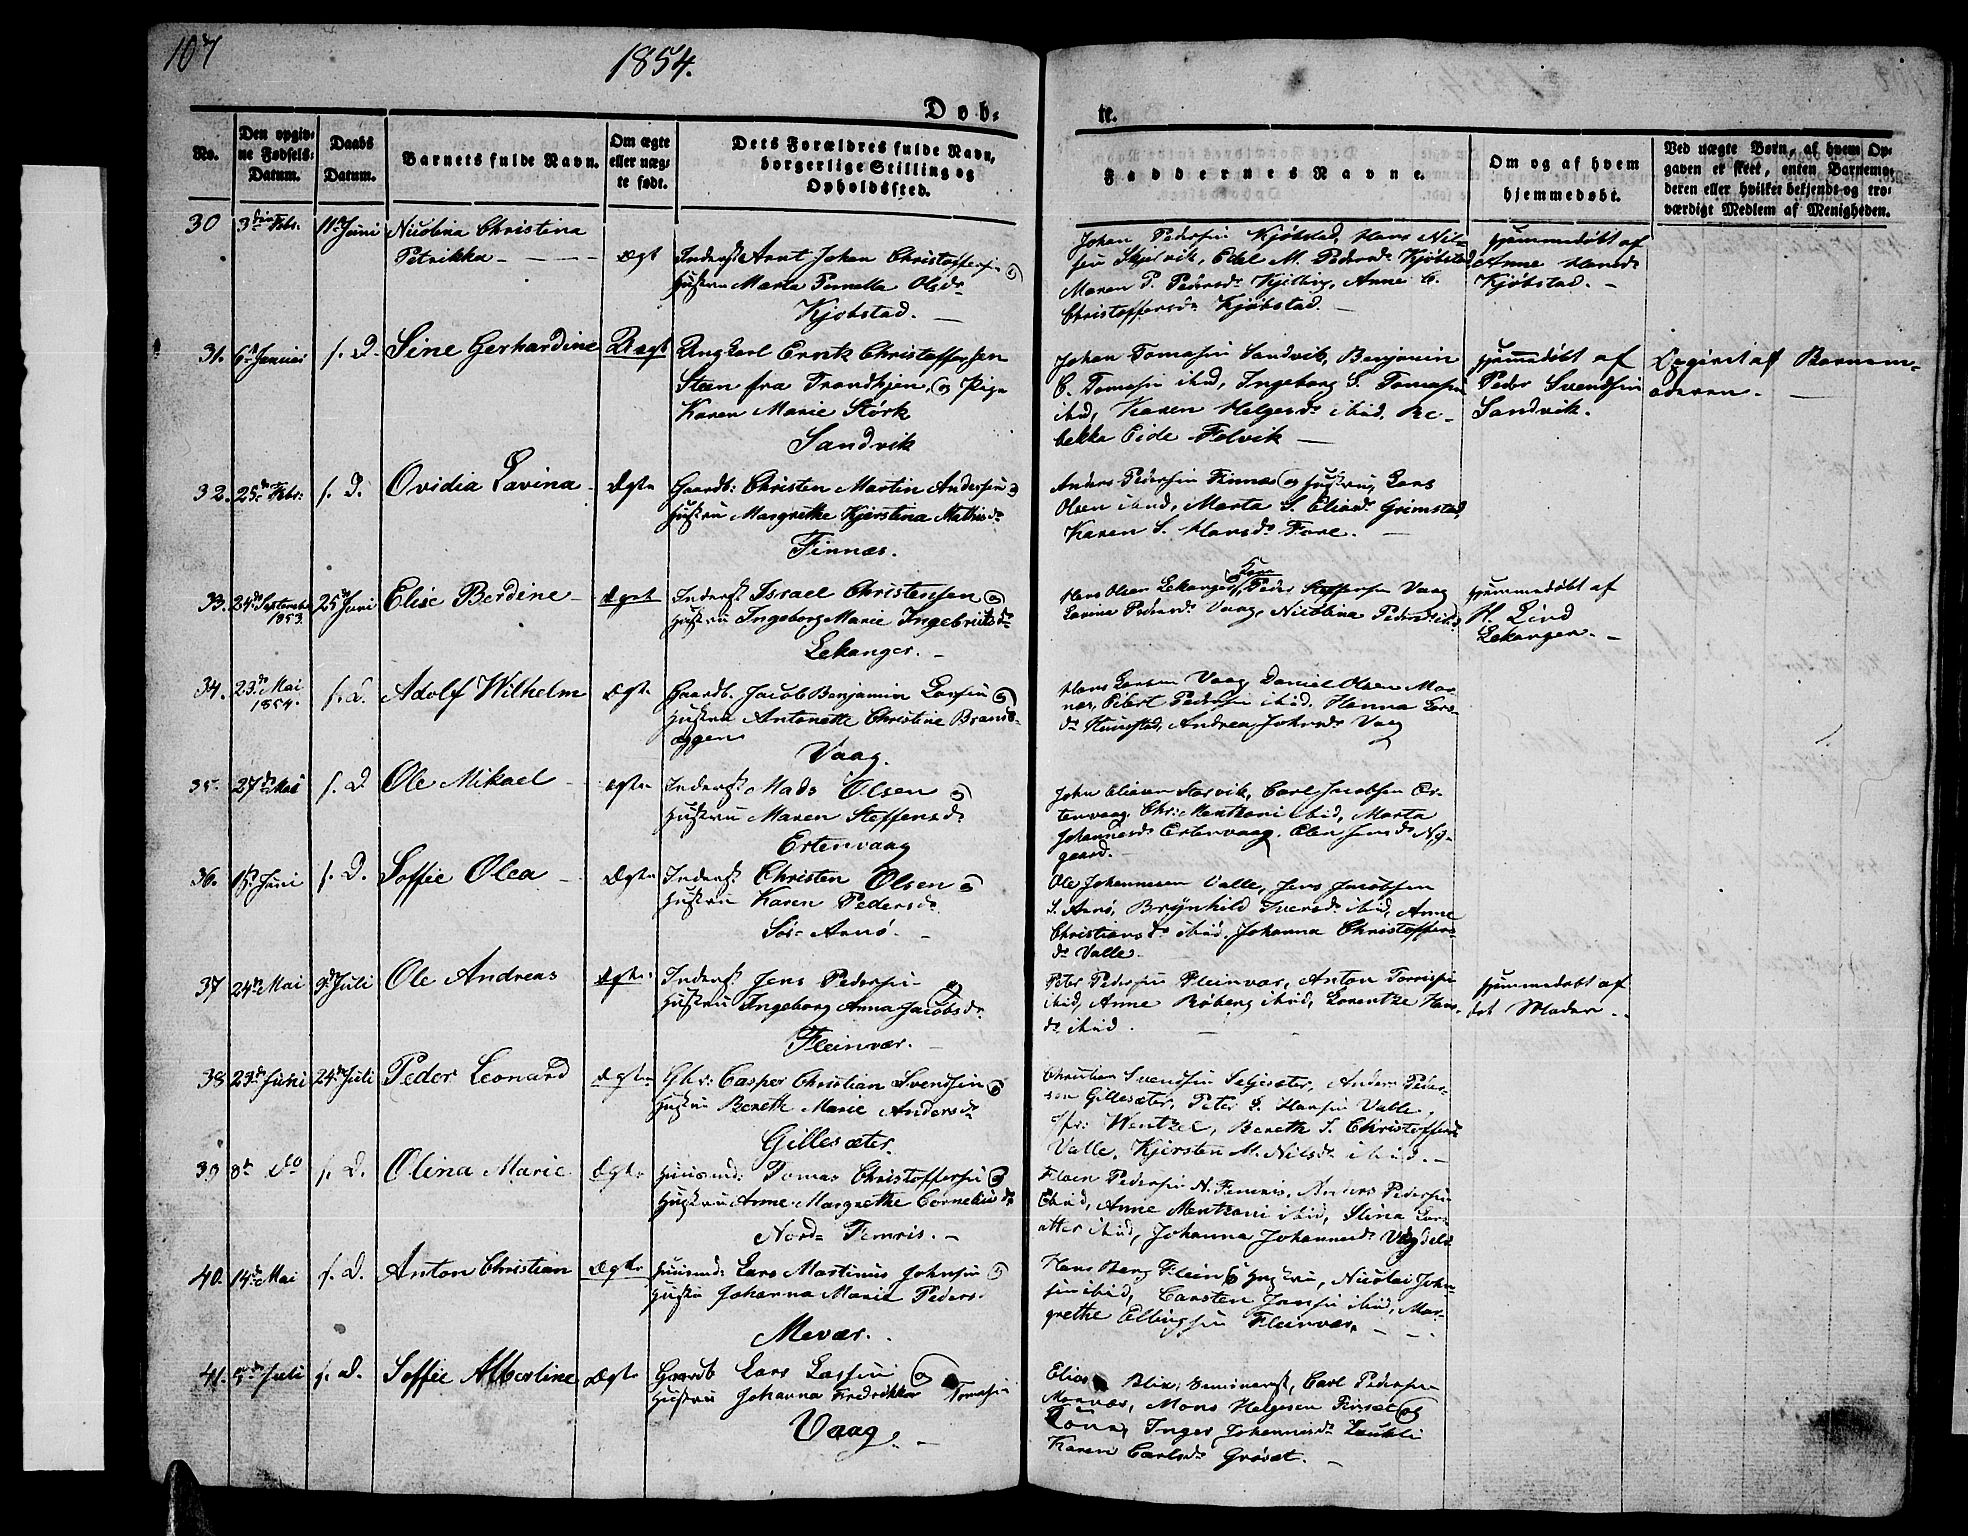 107
1854.
Døb-
te.
No.
Den opgiv-
ne Fødsels-
Datum.
Daabs
Datum.
Barnets fulde Navn.
Om ægte
eller uæg-
te født.
Dets Forældres fulde Navn,
borgerlige Stilling og
Opholdssted.
Faddernes Navne.
Om og af hvem
hjemmedøbt.
Ved uægte Børn, af hvem Op-
gaven er skeet, enten Barnemo-
deren eller hvilket bekjendt og tro-
værdigt Medlem af Menigheden.
30 3die Febr. 11te Juni Nicolina Christina
Petrikka ægt Inderst Arnt Johan Christoffersen og
Hustru Marta Pernella Olsdr
Kjøbstad.
Johan Pedersen Kjøbstad, Hans Nil-
sen Skjelvik, Edel M. Pedersdr Kjøbstad
Maren P. Pedersdr Kjelling, Anne C.
Christoffersdr Kjøbstad.
hjemmedøbt af
Anne Hansdr
Kjøbstad.
31. 6te Januar s. D. Sine Gerhardine Uægt Ungkarl Christoffersen
Steen fra Trondhjem og Pige
Karen Marie Størk
Sandvik
Johan Tomasen Sandvik, Benjamin
C. Tomasen ibid, Ingeborg S. Tomasen
ibid, Karen Helgesdr ibid. Re-
bekka Eide Felvik
hjemmedøbt af
Peder Svendsen
Sandvik.
Opgivet af Barnem-
oderen.
32. 25de Febr: s. D. Ovidia Lavina Ægte Gaardb: Christen Martin Andersen og
Hustru Margrethe Kjerstina Mathisdr
Finnæs.
Anders Pedersen Finnæs og Hustru, Lars
Olsen ibid, Marta S. Eliasdr Grimstad,
Karen S. Hansdr Fore.
33. 24de September
1853. 25de Juni Elise Berdine ægte Inderst Israel Christensen og
Hustru Ingeborg Marie Ingebrigtsdr
Lekanger.
Hans Olsen Lekanger og Kone, Peder Steffensen Vaag
Lavina Pedersdr Vaag, Nicolina Pedersdr ibid
hjemmedøbt af
H. Lind
Lekanger.
34. 23de Mai
1854. s. D. Adolf Wilhelm ægte Gaardb. Jacob Benjamin Larsen og
Hustru Antonette Christine Brands-
æggen
Vaag.
Hans Larsen Vaag, Daniel Olsen Mor-
næs, Eilert Pedersen ibid. Hanna Lars-
dr Hunstad, Andrea Johnsdr Vaag
35. 27de Mai s. D Ole Mikael ægte Inderst Mads Olsen og
Hustru Maren Steffensdr
Ertenvaag
John Eliasen Storvik, Carl Jacobsen Er-
tenvaag, Chr: Mentzoni ibid, Marta
Johannesdr Ertenvaag. Elen Jensdr Ny-
gaard.
36. 1ste Juni s. D. Soffie Olea Ægte Inderst Christen Olsen og
Hustru Karen Pedersdr
Sør-Arnø.
Ole Johannesen Valle, Jens Jacobsen
S. Arnø, Brynhild Iversdr ibid, Anne
Christiansdr ibid, Johanna Christoffers-
dr Valle.
37 24de Mai 9de Juli Ole Andreas ægte Inderst Jens Pedersen og
Hustru Ingeborg Anna Jacobsdr
Fleinvær.
Peter Pedersen Fleinvær, Anton Torrisen
ibid, Anne Røberg ibid, Lorentze Hans-
dr ibid.
hjemmedøbt af
det Moder.
38 23de Juni 24de Juli Peder Leonard ægte Gbr: Casper Christian Svendsen og
Hustru Bereth Marie Andersdr
Gillesæter.
Christian Svendsen Seljesæter, Anders Peder-
sen Gillesæter, Peter S. Hansen Valle,
Wentzel, Bereth S. Christoffersdr
Valle, Kjersten M. Nilsdr ibid.
39 8de Do s. D. Olina Marie ægte Huusmd: Tomas Christoffersen og
Hustru Anne Margrethe Corneliusdr
Nord-Femris.
Pedersen N. Femris, Anders Pedersen
ibid, Anne Mentzoni ibid, Stina Lar-
ibid, Johanna Johannesdr
40. 14de Mai s. D. Anton Christian Ægte Huusmd: Lars Martinus Johnsen og
Hustru Johanna Marie Peders.
Mevær.
Hans Berg Flein og Hustru, Nicolai John-
sen ibid, Carsten Jensen ibid, Mar-
grethe Ellingsen Fleinvær.
41. 5de Juli s. D. Soffie Albertine Ægte Gaardb Lars Larsen og
Hustru Johanna Fredrikka Tomasen
Vaag.
Elias Blix, Seminarist, Carl Pedersen
Mons Helgesen og
Kone, Inger Johannesdr
Karen Carlsdr Grøsæt.